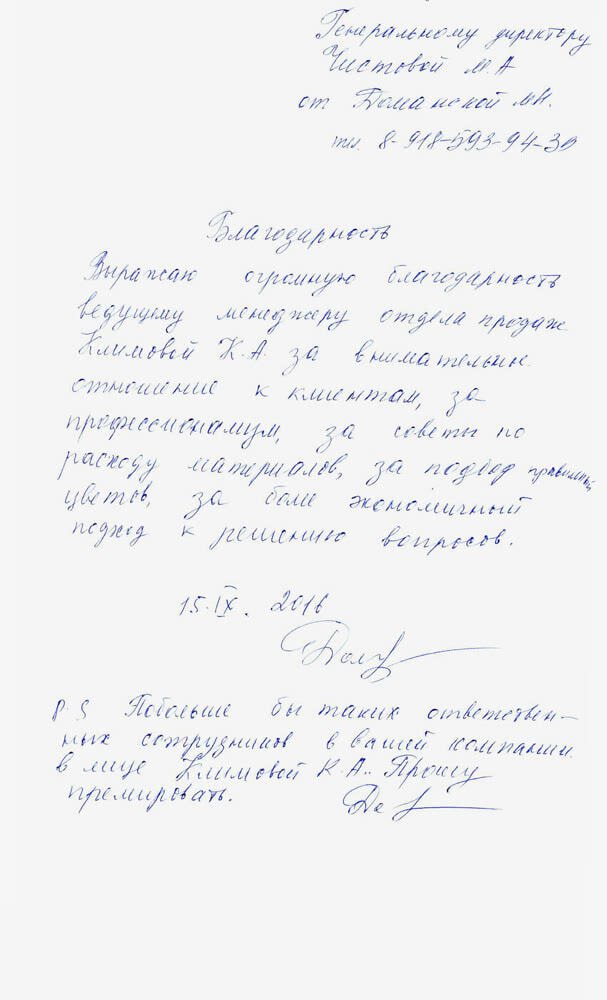 Генеральному директору
Чистовой М.А
от Доманской М.Н.
тел. 8-918-593-94-30
Благодарность
Выражаю огромную благодарность
ведущему менеджеру отдела продаж
Климовой К.А. за внимательное
отношение к клиентам, за
профессионализм, за советы по
расходу материалов, за подбор правильных
цветов, за более экономичный
подход к решению вопросов.
15.IX. 2016
P.S Побольше бы таких ответствен-
ных сотрудников в вашей компании
в лице Климовой К.А.. Прошу
премировать.